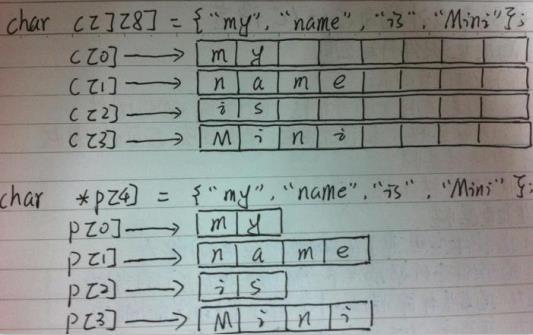 char c[][8] = {"my", "name", "is", "Mini"};
c[0] → m y
c[1] → n a m e
c[2] → i s
c[3] → M i n i
char *p[4] = {"my", "name", "is", "Mini"};
p[0] → m y
p[1] → n a m e
p[2] → i s
p[3] → M i n i